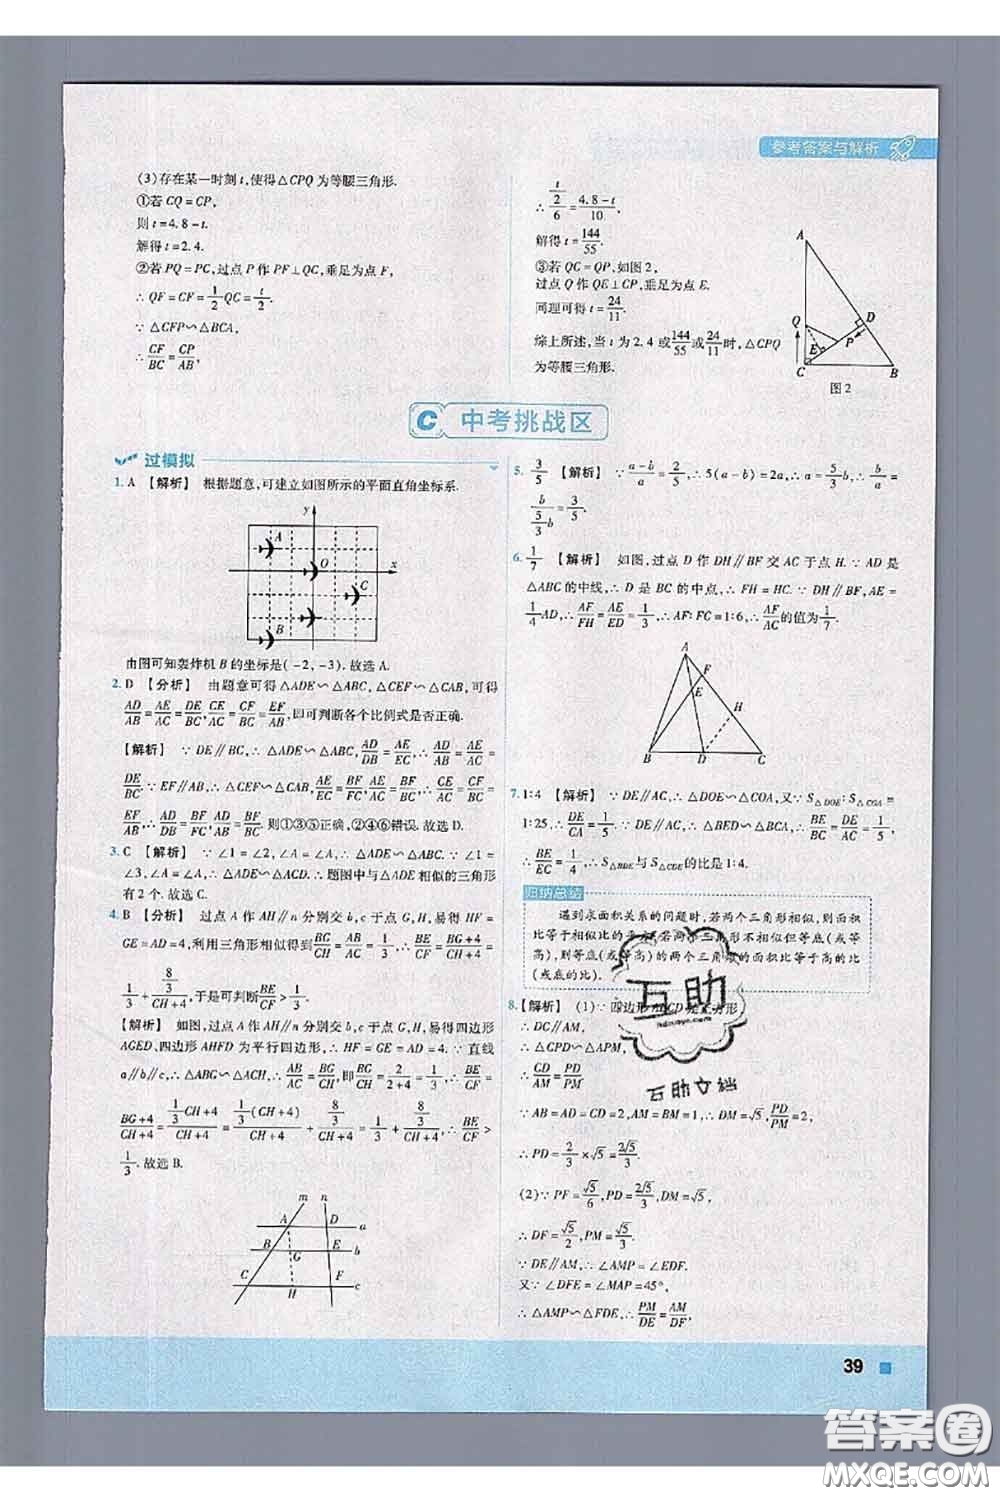 参考答案与解析
(3)存在某一时刻 t,使得△CPQ 为等腰三角形.
①若 CQ=CP,
则 t=4.8-t.
解得 t=2.4.
②若 PQ=PC,过点 P 作 PF⊥QC,垂足为点 F,
∴ QF=CF=1/2 QC=t/2.
∵ △CFP∽△BCA,
∴ CF/BC=CP/AB,
∴ (t/2)/6=(4.8-t)/10,
解得 t=144/55.
③若 QC=QP,如图 2,
过点 Q 作 QE⊥CP,垂足为点 E.
同理可得 t=24/11.
综上所述,当 t 为 2.4 或 144/55 或 24/11 时,△CPQ
为等腰三角形.
A
Q
D
E
P
C
B
图 2
C 中考挑战区
过模拟
1. A 【解析】 根据题意,可建立如图所示的平面直角坐标系.
y
A
O
x
C
B
由图可知轰炸机 B 的坐标是(-2,-3).故选 A.
2. D 【分析】 由题意可得△ADE∽△ABC,△CEF∽△CAB,可得
AD/AB=AE/AC=DE/BC,CE/AC=CF/BC=EF/AB,即可判断各个比例式是否正确.
【解析】 ∵ DE∥BC,∴ △ADE∽△ABC,AD/DB=AE/EC,∴ AD/AB=AE/AC=
DE/BC.∵ EF∥AB,∴ △CEF∽△CAB,AE/EC=BF/FC,∴ AE/AC=BF/BC,CE/AC=CF/BC=
EF/AB,∴ AD/DB=BF/FC,AD/AB=BF/BC.则①③⑤正确,②④⑥错误.故选 D.
3. C 【解析】 ∵ ∠1=∠2,∠A=∠A,∴ △ADE∽△ABC.∵ ∠1=
∠3,∠A=∠A,∴ △ADE∽△ACD.∴ 题图中与△ADE 相似的三角形
有 2 个.故选 C.
4. B 【分析】 过点 A 作 AH∥n 分别交 b,c 于点 G,H,易得 HF=
GE=AD=4,利用三角形相似得到 BG/CH=AB/AC=1/3,∴ BE/CF=(BG+4)/(CH+4)=
1/3+(8/3)/(CH+4),于是可判断 BE/CF>1/3.
【解析】 如图,过点 A 作 AH∥n 分别交 b,c 于点 G,H,易得四边形
AGED,四边形 AHFD 为平行四边形,∴ HF=GE=AD=4.∵ 直线
a∥b∥c,∴ △ABG∽△ACH,∴ AB/AC=BG/CH,即 BG/CH=2/(2+4)=1/3,∴ BE/CF=
(BG+4)/(CH+4)=(1/3CH+4)/(CH+4)=(1/3(CH+4)+8/3)/(CH+4)=1/3+(8/3)/(CH+4),∴ BE/CF>
1/3.故选 B.
m
n
A
D
a
B
E
b
G
C
F
c
H
5. 3/5 【解析】 ∵ (a-b)/a=2/5,∴ 5(a-b)=2a,∴ a=5/3 b,∴ b/a=
b/(5/3 b)=3/5.
6. 1/7 【解析】 如图,过点 D 作 DH∥BF 交 AC 于点 H.∵ AD 是
△ABC 的中线,∴ D 是 BC 的中点,∴ FH=HC.∵ DH∥BF,AE=
1/4 AD,∴ AF/FH=AE/ED=1/3,∴ AF:FC=1:6,∴ AF/AC 的值为 1/7.
A
F
E
H
B
D
C
7. 1:4 【解析】 ∵ DE∥AC,∴ △DOE∽△COA,又∵ S△DOE:S△COA=
1:25,∴ DE/CA=1/5.∵ DE∥AC,∴ △BDE∽△BCA,∴ BE/BC=DE/AC=1/5,
∴ BE/EC=1/4,∴ S△BDE与 S△CDE的比是 1:4.
归纳总结
遇到求面积关系的问题时,若两个三角形相似,则面积
比等于相似比的平方;若两个三角形不相似但等底(或等
高),则等底(或等高)的两个三角形的面积比等于高的比
(或底的比).
8.【解析】 (1)∵ 四边形 ABCD 是正方形
∴ DC∥AM,
∴ △CPD∽△APM,
∴ CD/AM=PD/PM
∵ AB=AD=CD=2,AM=BM=1,∴ DM=√5,PD/PM=2,
∴ PD=2/3×√5=2√5/3.
(2)∵ PF=√5/6,PD=2√5/3,DM=√5,
∴ DF=√5/2,PM=√5/3.
∵ DE∥AM,∴ ∠AMP=∠EDF.
又∵ ∠DFE=∠MAP=45°,
∴ △AMP∽△FDE,∴ PM/DE=AM/DF,
互助
互助文档
39
答案圈
MXQE.COM